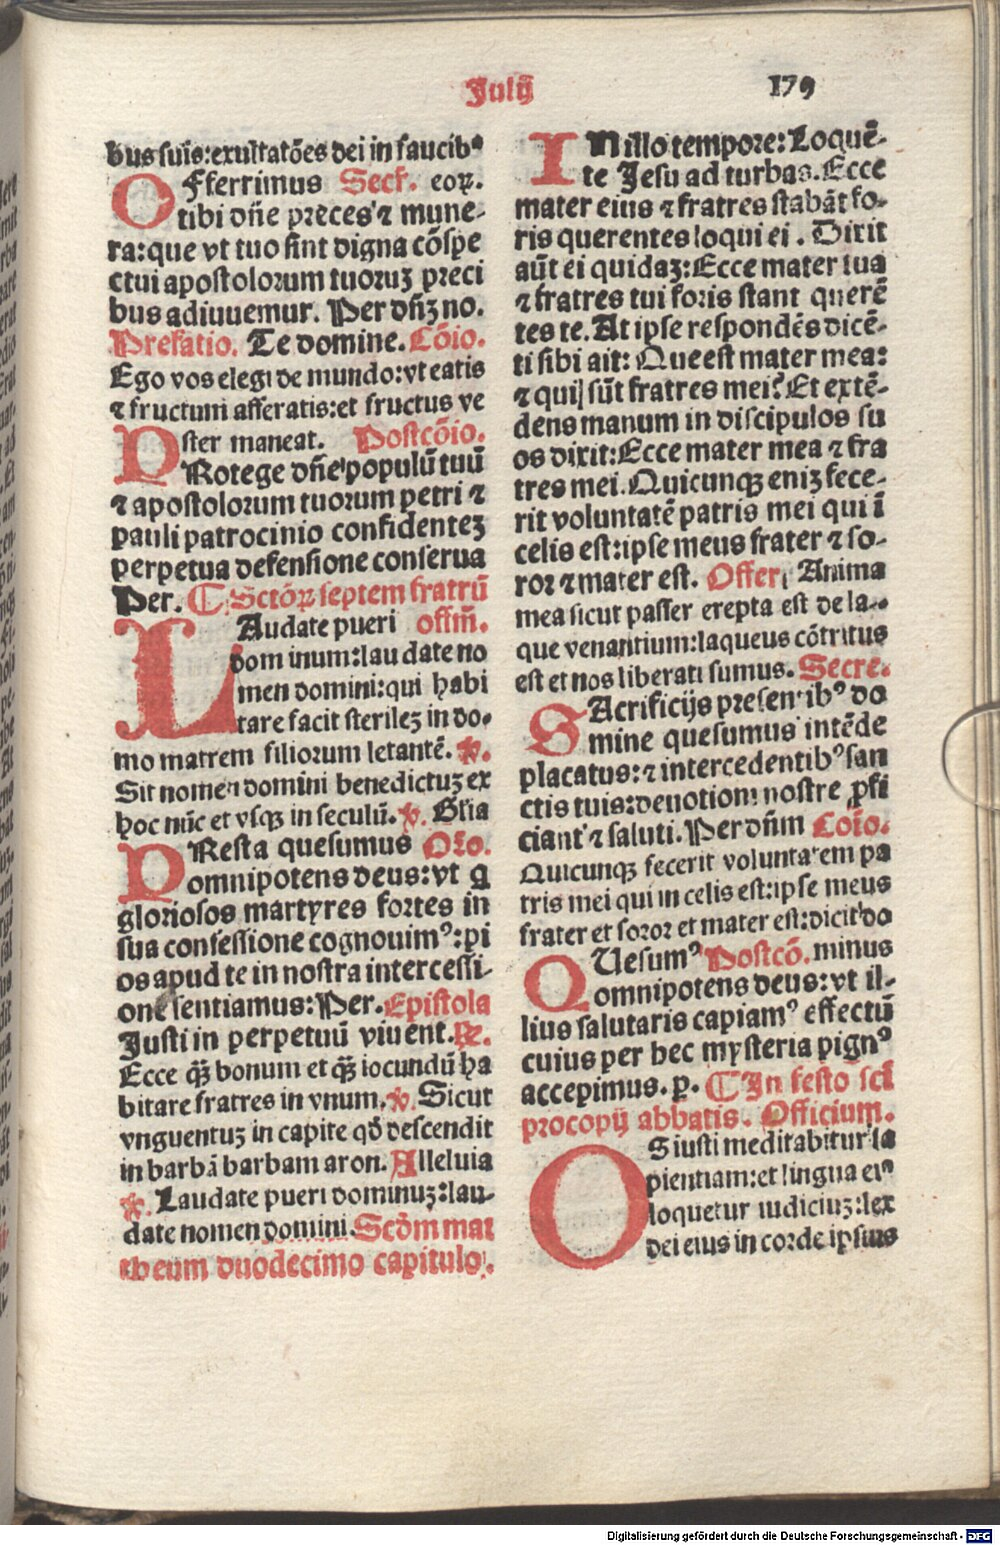 Julij
179
bus suis:exultatões dei in faucibꝰ
OFferrimus Secr̄. eoꝝ.
tibi dñe preces ⁊ mune-
ra:que vt tuo sint digna cõspe
ctui apostolorum tuoruꝫ preci
bus adiuuemur. Per dñꝫ no.
Prefatio. Te domine. Cõio.
Ego vos elegi de mundo:vt eatis
⁊ fructum afferatis:et fructus ve
ster maneat. Postcõio.
PRotege dñe populũ tuũ
⁊ apostolorum tuorum petri ⁊
pauli patrocinio confidenteꝫ
perpetua defensione conserua
Per. ¶ Sctõꝝ septem fratrũ
LAudate pueri offm̄.
dominum:laudate no
men domini:qui habi
tare facit sterileꝫ in do-
mo matrem filiorum letantẽ. ℣.
Sit nomen domini benedictuꝫ ex
hoc nũc et vsqꝫ in seculũ. ℣. Glia
PResta quesumus Oro.
omnipotens deus:vt q
gloriosos martyres fortes in
sua confessione cognouimꝰ:pi
os apud te in nostra intercessi-
one sentiamus:Per. Epistola
Justi in perpetuũ viuent. ℟.
Ecce qꝫ̃ bonum et qꝫ̃ iocundũ ha
bitare fratres in vnum. ℣. Sicut
vnguentuꝫ in capite qd̃ descendit
in barbã barbam aron. Alleluia
℣. Laudate pueri dominuꝫ:lau-
date nomen domini. Scdm̄ mat
theum duodecimo capitulo.
IN illo tempore: Loquẽ-
te Jesu ad turbas. Ecce
mater eius ⁊ fratres stabãt fo-
ris querentes loqui ei. Dixit
aũt ei quidaꝫ: Ecce mater tua
⁊ fratres tui foris stant querẽ
tes te. At ipse respondẽs dicẽ-
ti sibi ait: Que est mater mea:
⁊ qui sũt fratres mei? Et extẽ-
dens manum in discipulos su
os dixit: Ecce mater mea ⁊ fra
tres mei. Quicunqꝫ eniꝫ fece-
rit voluntatẽ patris mei qui ĩ
celis est:ipse meus frater ⁊ so-
ror ⁊ mater est. Offer. Anima
mea sicut passer erepta est de la-
que venantium:laqueus cõtritus
est et nos liberati sumus. Secre.
SAcrificijs presentibꝰ do
mine quesumus intẽde
placatus:⁊ intercedentibꝰ san
ctis tuis:deuotioni nostre ꝓfi
ciant ⁊ saluti. Per dñm Cõio.
Quicunqꝫ fecerit voluntatem pa
tris mei qui in celis est:ipse meus
frater et soror et mater est:dicit do
QUesumꝰ Postcõ. minus
omnipotens deus:vt il-
lius salutaris capiamꝰ effectũ
cuius per hec mysteria pignꝰ
accepimus. p. ¶ In festo sctĩ
procopij abbatis. Officium.
OS iusti meditabitur sa
pientiam:et lingua eiꝰ
loquetur iudiciuꝫ:lex
dei eius in corde ipsius
Digitalisierung gefördert durch die Deutsche Forschungsgemeinschaft - DFG